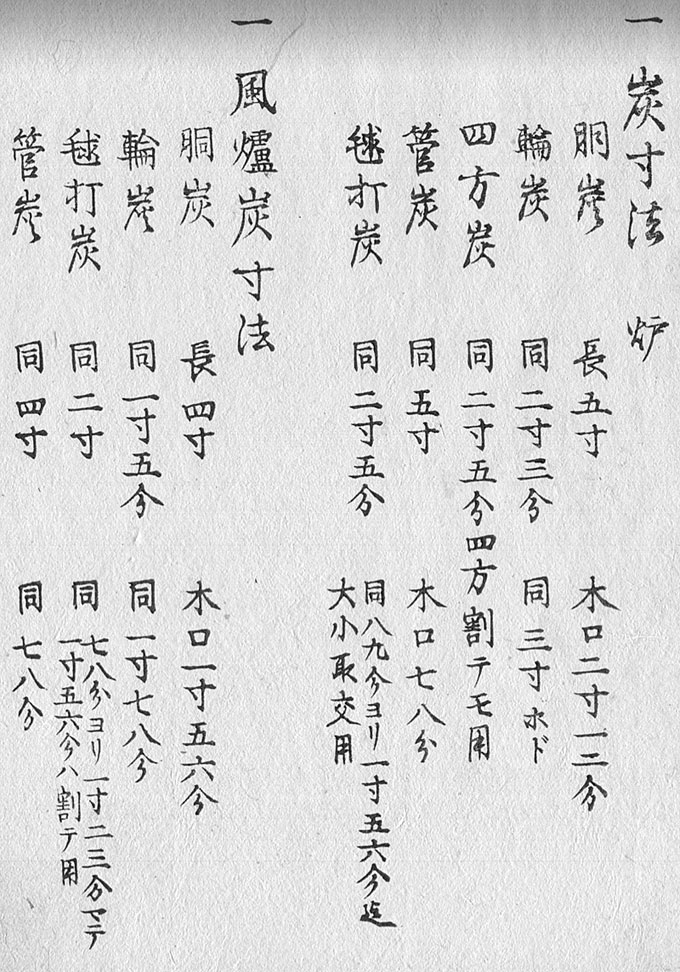 一 炭寸法 炉
胴炭 長五寸 木口二寸一二分
輪炭 同二寸三分 同三寸ホド
四方炭 同二寸五分四方割テモ用
管炭 同五寸 木口七八分
毬打炭 同二寸五分 同八九分ヨリ一寸五六分迄
大小取交用
一 風爐炭寸法
胴炭 長四寸 木口一寸五六分
輪炭 同一寸五分 同一寸七八分
毬打炭 同二寸 同七八分ヨリ一寸二三分マテ
一寸五六分ハ割テ用
管炭 同四寸 同七八分